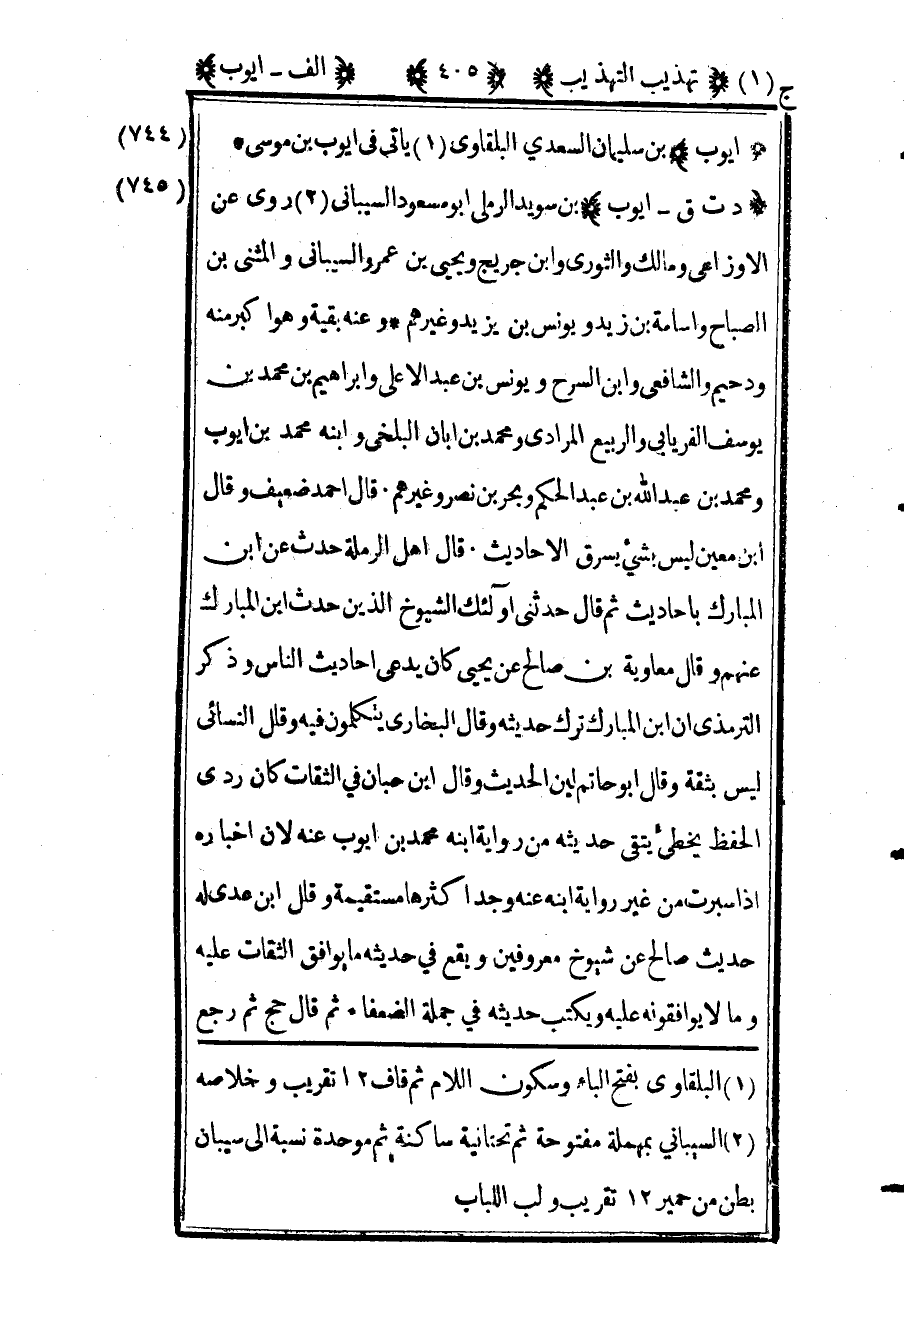 ج (١) ﴿ تهذيب التهذيب ﴾ ﴿ ٤٠٥ ﴾ ﴿ الف - ايوب ﴾
﴿ ايوب ﴾ بن سليمان السعدي البلقاوى (١) ياتى فى ايوب بن موسى * (٧٤٤)
﴿ د ت ق - ايوب ﴾ بن سويد الرملى ابو مسعود السيبانى (٢) روى عن (٧٤٥)
الاوزاعى ومالك والثورى وابن جريج ويحيى بن عمرو السيبانى والمثنى بن
الصباح واسامة بن زيد ويونس بن يزيد وغيرهم * وعنه بقية وهو اكبر منه
ودحيم والشافعى وابن السرح ويونس بن عبد الاعلى وابراهيم بن محمد بن
يوسف الفريابي والربيع المرادى ومحمد بن ابان البلخى وابنه محمد بن ايوب
ومحمد بن عبدالله بن عبدالحكم وبحر بن نصر وغيرهم · قال احمد ضعيف وقال
ابن معين ليس بشئ يسرق الاحاديث · قال اهل الرملة حدث عن ابن
المبارك باحاديث ثم قال حدثنى اولئك الشيوخ الذين حدث ابن المبارك
عنهم وقال معاوية بن صالح عن يحيى كان يدعى احاديث الناس وذكر
الترمذى ان ابن المبارك ترك حديثه وقال البخارى يتكلمون فيه وقال النسائى
ليس بثقة وقال ابو حاتم لين الحديث وقال ابن حبان في الثقات كان ردى
الحفظ يخطئ يتقى حديثه من رواية ابنه محمد بن ايوب عنه لان اخباره
اذا سبرت من غير رواية ابنه عنه وجد اكثرها مستقيمة وقال ابن عدى له
حديث صالح عن شيوخ معروفين ويقع في حديثه ما يوافق الثقات عليه
وما لا يوافقونه عليه ويكتب حديثه في جملة الضعفا * ثم قال حج ثم رجع
(١) البلقاوى بفتح الباء وسكون اللام ثم قاف ١٢ تقريب وخلاصه
(٢) السيباني بمهملة مفتوحة ثم تحتانية ساكنة ثم موحدة نسبة الى سيبان
بطن من حمير ١٢ تقريب ولب اللباب